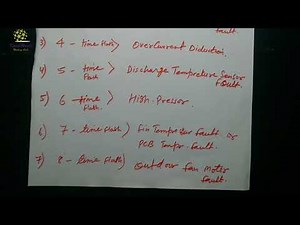 fault.
3) 4 - time flash > OverCurrent Diduction
4) 5 - time flash > Discharge Tempreture Sensor fault.
5) 6 time flash. > High. Pressor.
6) 7 - time flash > fin Tempretor fault. or
PCB Tempr. fault.
7) 8 - time flash) outdoor fan moter
fault.